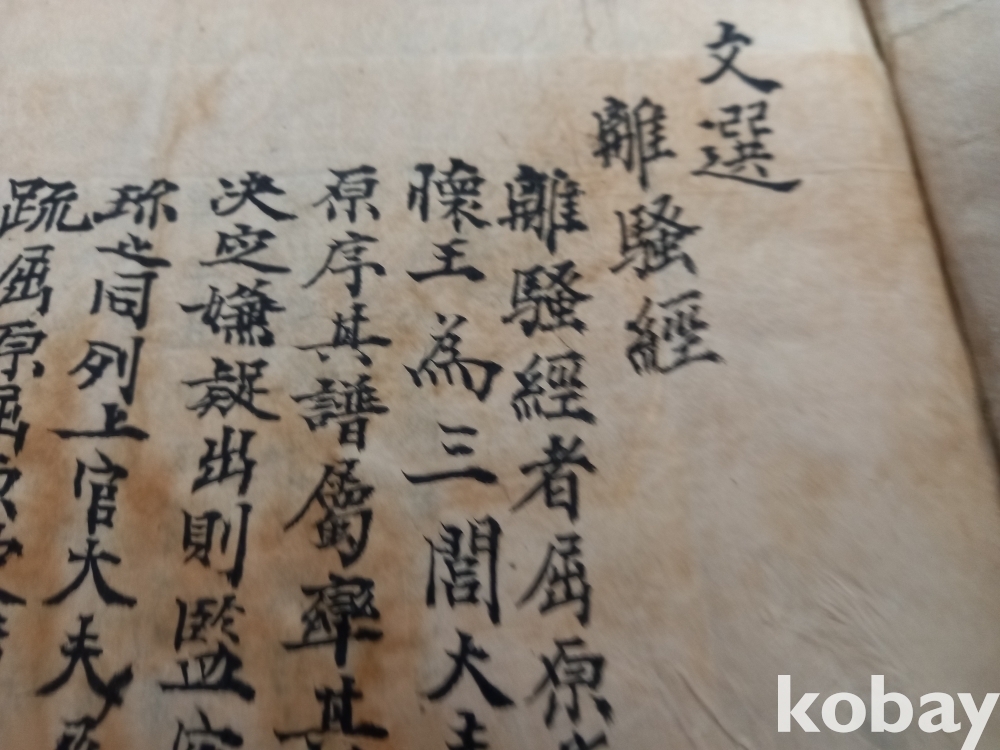 文選
離騷經
離騷經者屈原
懷王為三閭大夫
原序其譜屬率其
決定嫌疑出則監察
珎之同列上官大夫
疏屈原屈原
kobay